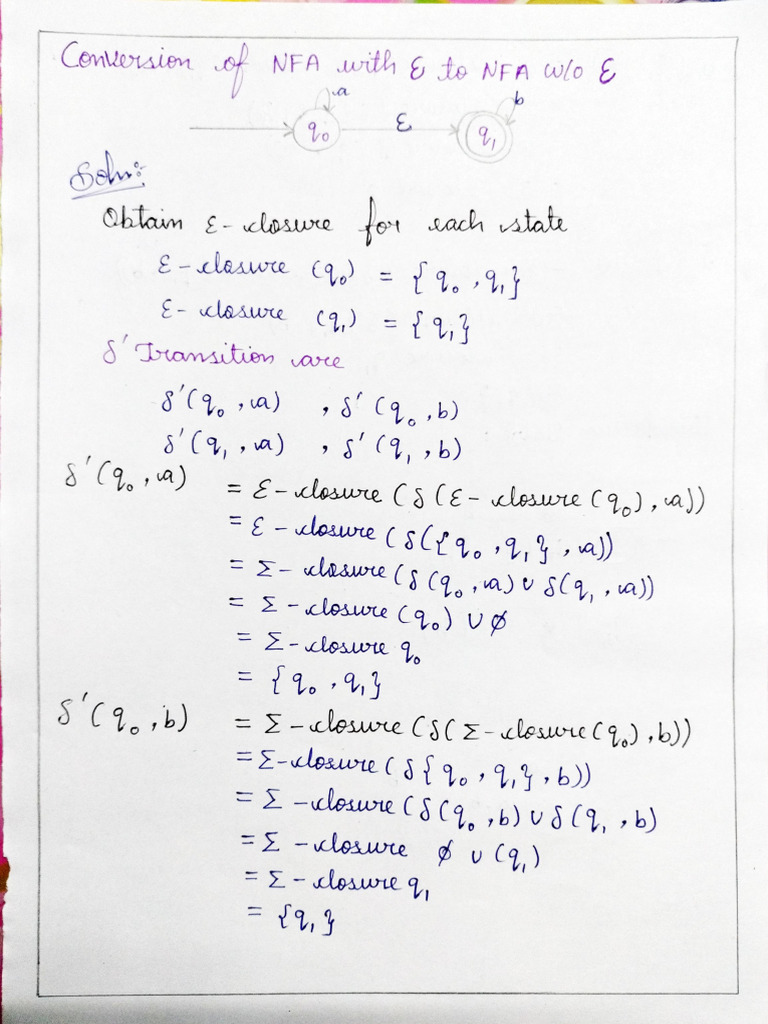 Conversion of NFA with Ɛ to NFA w/o Ɛ
a b
q₀ Ɛ q₁
Soln:
Obtain Ɛ-closure for each state
Ɛ-closure (q₀) = {q₀, q₁}
Ɛ-closure (q₁) = {q₁}
δ' Transition are
δ'(q₀, a) , δ'(q₀, b)
δ'(q₁, a) , δ'(q₁, b)
δ'(q₀, a) = Ɛ-closure (δ(Ɛ-closure(q₀), a))
= Ɛ-closure (δ({q₀, q₁}, a))
= Σ-closure (δ(q₀, a) ∪ δ(q₁, a))
= Σ-closure (q₀) ∪ ∅
= Σ-closure q₀
= {q₀, q₁}
δ'(q₀, b) = Σ-closure (δ(Σ-closure(q₀), b))
= Σ-closure (δ{q₀, q₁}, b))
= Σ-closure (δ(q₀, b) ∪ δ(q₁, b)
= Σ-closure ∅ ∪ (q₁)
= Σ-closure q₁
= {q₁}